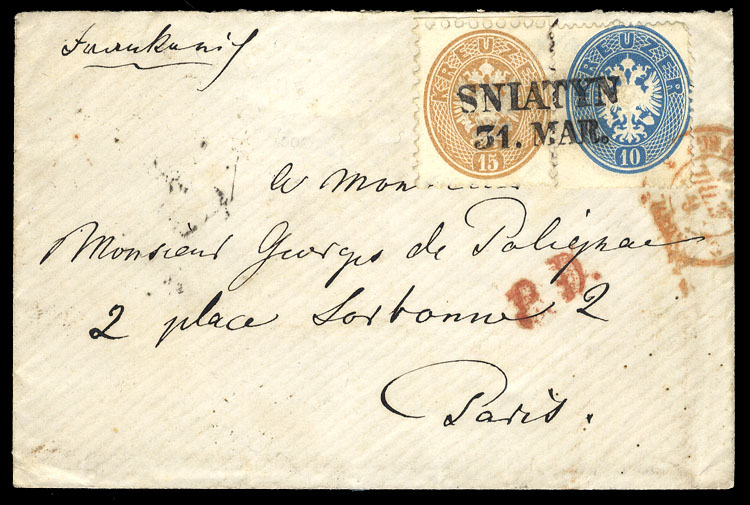 KREUZER
15
KREUZER
10
SNIATYN
31. MAR.
Monsieur Georges de Polignac
P.D.
2 place Sorbonne 2
Paris.